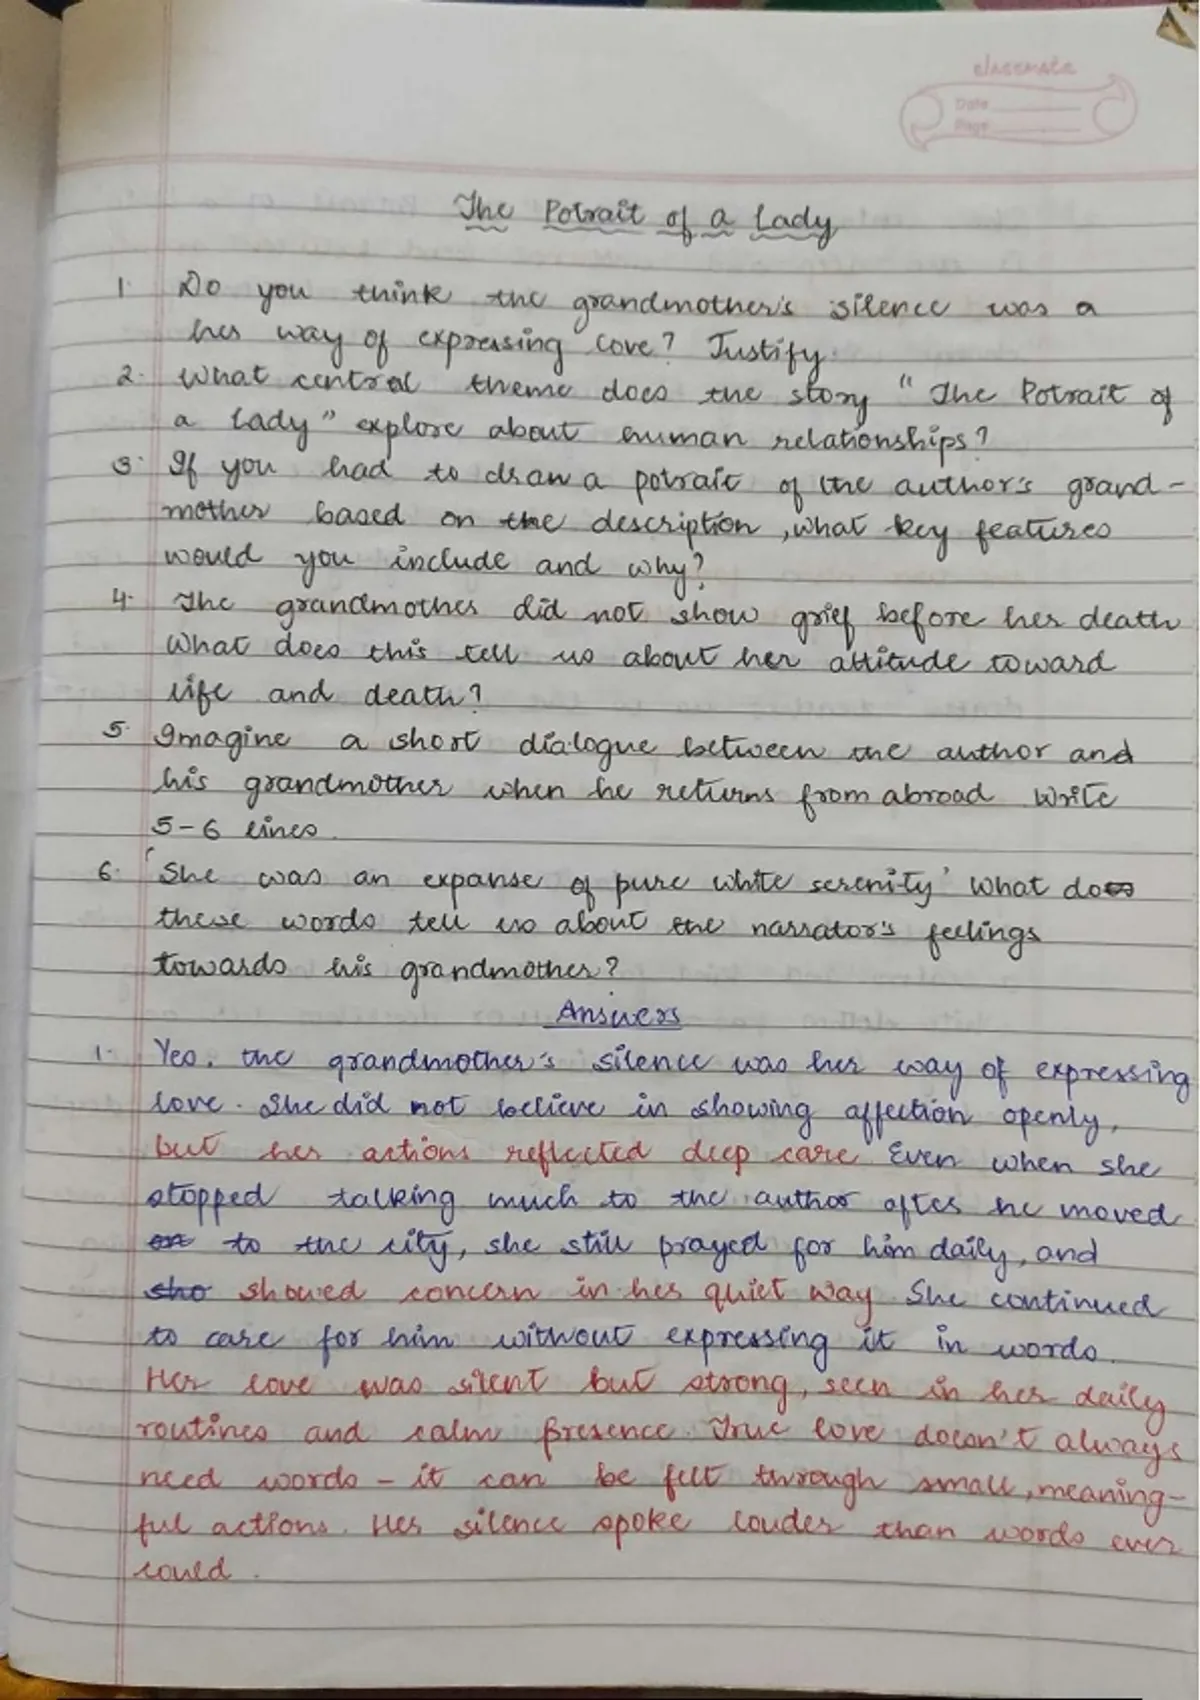 classmate
Date
Page
The Potrait of a Lady
1. Do you think the grandmother's silence was a
her way of expressing love? Justify.
2. What central theme does the story "The Potrait of
a Lady" explore about human relationships?
3. If you had to draw a potrait of the author's grand-
mother based on the description, what key features
would you include and why?
4. The grandmother did not show grief before her death
What does this tell us about her attitude toward
life and death?
5. Imagine a short dialogue between the author and
his grandmother when he returns from abroad Write
5-6 lines.
6. 'She was an expanse of pure white serenity' What does
these words tell us about the narrator's feelings
towards his grandmother?
Answers
1. Yes, the grandmother's silence was her way of expressing
love. She did not believe in showing affection openly,
but her actions reflected deep care. Even when she
stopped talking much to the author after he moved
to the city, she still prayed for him daily, and
sho showed concern in her quiet way. She continued
to care for him without expressing it in words.
Her love was silent but strong, seen in her daily
routines and calm presence. True love doesn't always
need words - it can be felt through small, meaning-
ful actions. Her silence spoke louder than words ever
could.